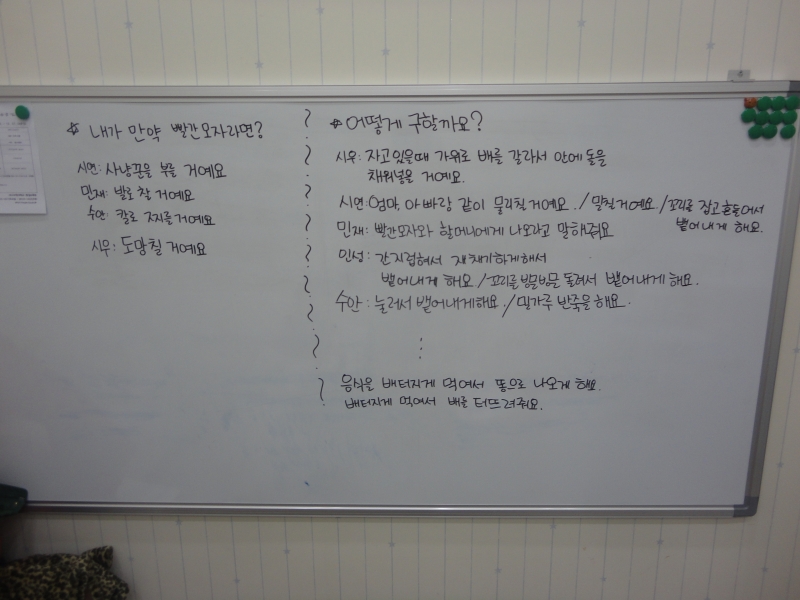 ☆ 내가 만약 빨간모자라면?
시연: 사냥꾼을 부를 거예요
민재: 발로 찰 거예요
수안: 칼로 찌를거예요
시우: 도망칠 거예요
☆ 어떻게 구할까요?
시우: 자고있을때 가위로 배를 갈라서 안에 돌을
채워넣을 거예요.
시연: 엄마, 아빠랑 같이 물리칠거예요. / 밀칠거예요 / 꼬리를 잡고 흔들어서
뱉어내게 해요.
민재: 빨간모자와 할머니에게 나오라고 말해줘요
민성: 간지럽혀서 재채기하게해서
뱉어내게 해요 / 꼬리를 빙글빙글 돌려서 뱉어내게 해요.
수안: 눌러서 뱉어내게해요. / 밀가루 반죽을 해요.
⋮
음식을 배터지게 먹여서 똥으로 나오게 해요.
배터지게 먹여서 배를 터뜨려줘요.